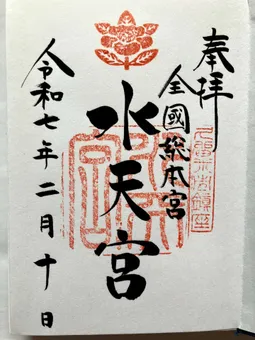 奉拝
全國総本宮
水天宮
令和七年二月十日